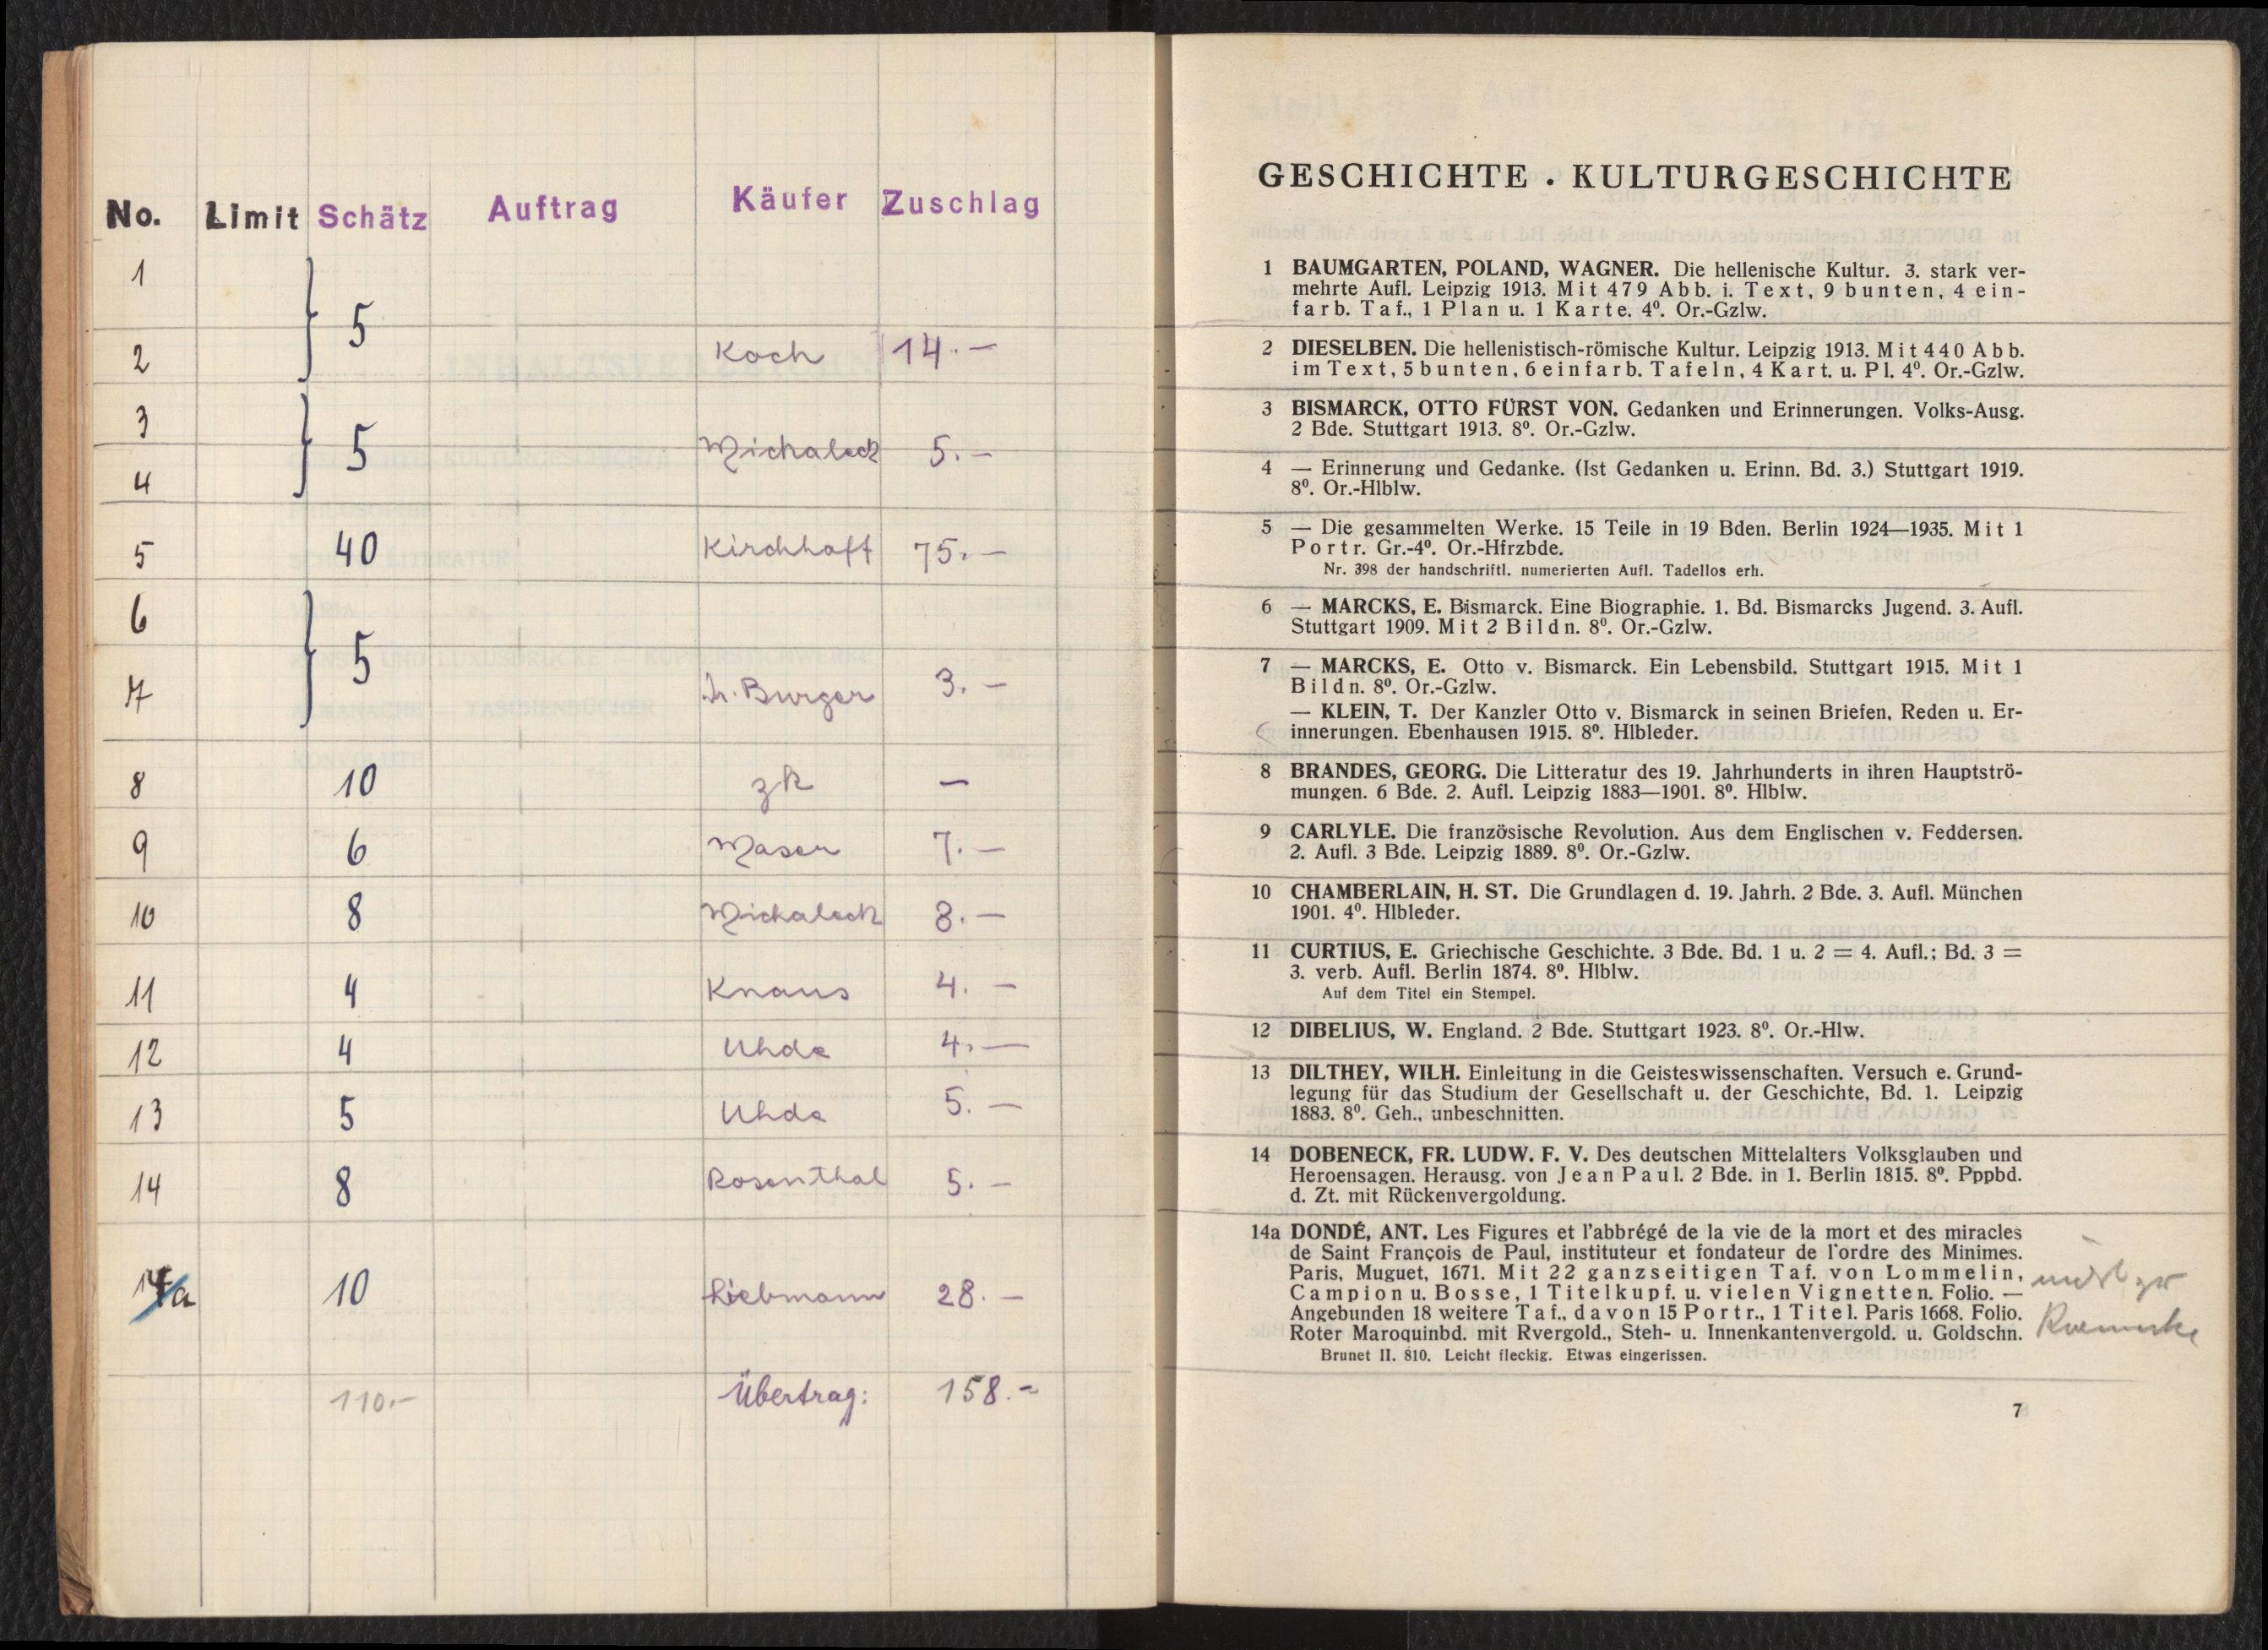 No. Limit Schätz Auftrag Käufer Zuschlag
1
5
2 Koch 14.—
3
5 Michaleck 5.—
4
5 40 Kirchhoff 75.—
6
5
7 H. Burger 3.—
8 10 zk —
9 6 Maser 7.—
10 8 Michaleck 8.—
11 4 Knaus 4.—
12 4 Uhde 4.—
13 5 Uhde 5.—
14 8 Rosenthal 5.—
14a 10 Liebmann 28.—
110.- Übertrag: 158.-
GESCHICHTE . KULTURGESCHICHTE
1 BAUMGARTEN, POLAND, WAGNER. Die hellenische Kultur. 3. stark ver-
mehrte Aufl. Leipzig 1913. Mit 479 Abb. i. Text, 9 bunten, 4 ein-
farb. Taf., 1 Plan u. 1 Karte. 4⁰. Or.-Gzlw.
2 DIESELBEN. Die hellenistisch-römische Kultur. Leipzig 1913. Mit 440 Abb.
im Text, 5 bunten, 6 einfarb. Tafeln, 4 Kart. u. Pl. 4⁰. Or.-Gzlw.
3 BISMARCK, OTTO FÜRST VON. Gedanken und Erinnerungen. Volks-Ausg.
2 Bde. Stuttgart 1913. 8⁰. Or.-Gzlw.
4 — Erinnerung und Gedanke. (Ist Gedanken u. Erinn. Bd. 3.) Stuttgart 1919.
8⁰. Or.-Hlblw.
5 — Die gesammelten Werke. 15 Teile in 19 Bden. Berlin 1924—1935. Mit 1
Portr. Gr.-4⁰. Or.-Hfrzbde.
Nr. 398 der handschriftl. numerierten Aufl. Tadellos erh.
6 — MARCKS, E. Bismarck. Eine Biographie. 1. Bd. Bismarcks Jugend. 3. Aufl.
Stuttgart 1909. Mit 2 Bildn. 8⁰. Or.-Gzlw.
7 — MARCKS, E. Otto v. Bismarck. Ein Lebensbild. Stuttgart 1915. Mit 1
Bildn. 8⁰. Or.-Gzlw.
— KLEIN, T. Der Kanzler Otto v. Bismarck in seinen Briefen, Reden u. Er-
innerungen. Ebenhausen 1915. 8⁰. Hlbleder.
8 BRANDES, GEORG. Die Litteratur des 19. Jahrhunderts in ihren Hauptströ-
mungen. 6 Bde. 2. Aufl. Leipzig 1883—1901. 8⁰. Hlblw.
9 CARLYLE. Die französische Revolution. Aus dem Englischen v. Feddersen.
2. Aufl. 3 Bde. Leipzig 1889. 8⁰. Or.-Gzlw.
10 CHAMBERLAIN, H. ST. Die Grundlagen d. 19. Jahrh. 2 Bde. 3. Aufl. München
1901. 4⁰. Hlbleder.
11 CURTIUS, E. Griechische Geschichte. 3 Bde. Bd. 1 u. 2 = 4. Aufl.; Bd. 3 =
3. verb. Aufl. Berlin 1874. 8⁰. Hlblw.
Auf dem Titel ein Stempel.
12 DIBELIUS, W. England. 2 Bde. Stuttgart 1923. 8⁰. Or.-Hlw.
13 DILTHEY, WILH. Einleitung in die Geisteswissenschaften. Versuch e. Grund-
legung für das Studium der Gesellschaft u. der Geschichte, Bd. 1. Leipzig
1883. 8⁰. Geh., unbeschnitten.
14 DOBENECK, FR. LUDW. F. V. Des deutschen Mittelalters Volksglauben und
Heroensagen. Herausg. von Jean Paul. 2 Bde. in 1. Berlin 1815. 8⁰. Pppbd.
d. Zt. mit Rückenvergoldung.
14a DONDÉ, ANT. Les Figures et l'abbrégé de la vie de la mort et des miracles
de Saint François de Paul, instituteur et fondateur de l'ordre des Minimes.
Paris, Muguet, 1671. Mit 22 ganzseitigen Taf. von Lommelin,
Campion u. Bosse, 1 Titelkupf. u. vielen Vignetten. Folio. —
Angebunden 18 weitere Taf., davon 15 Portr., 1 Titel. Paris 1668. Folio.
Roter Maroquinbd. mit Rvergold., Steh- u. Innenkantenvergold. u. Goldschn.
Brunet II. 810. Leicht fleckig. Etwas eingerissen.
7